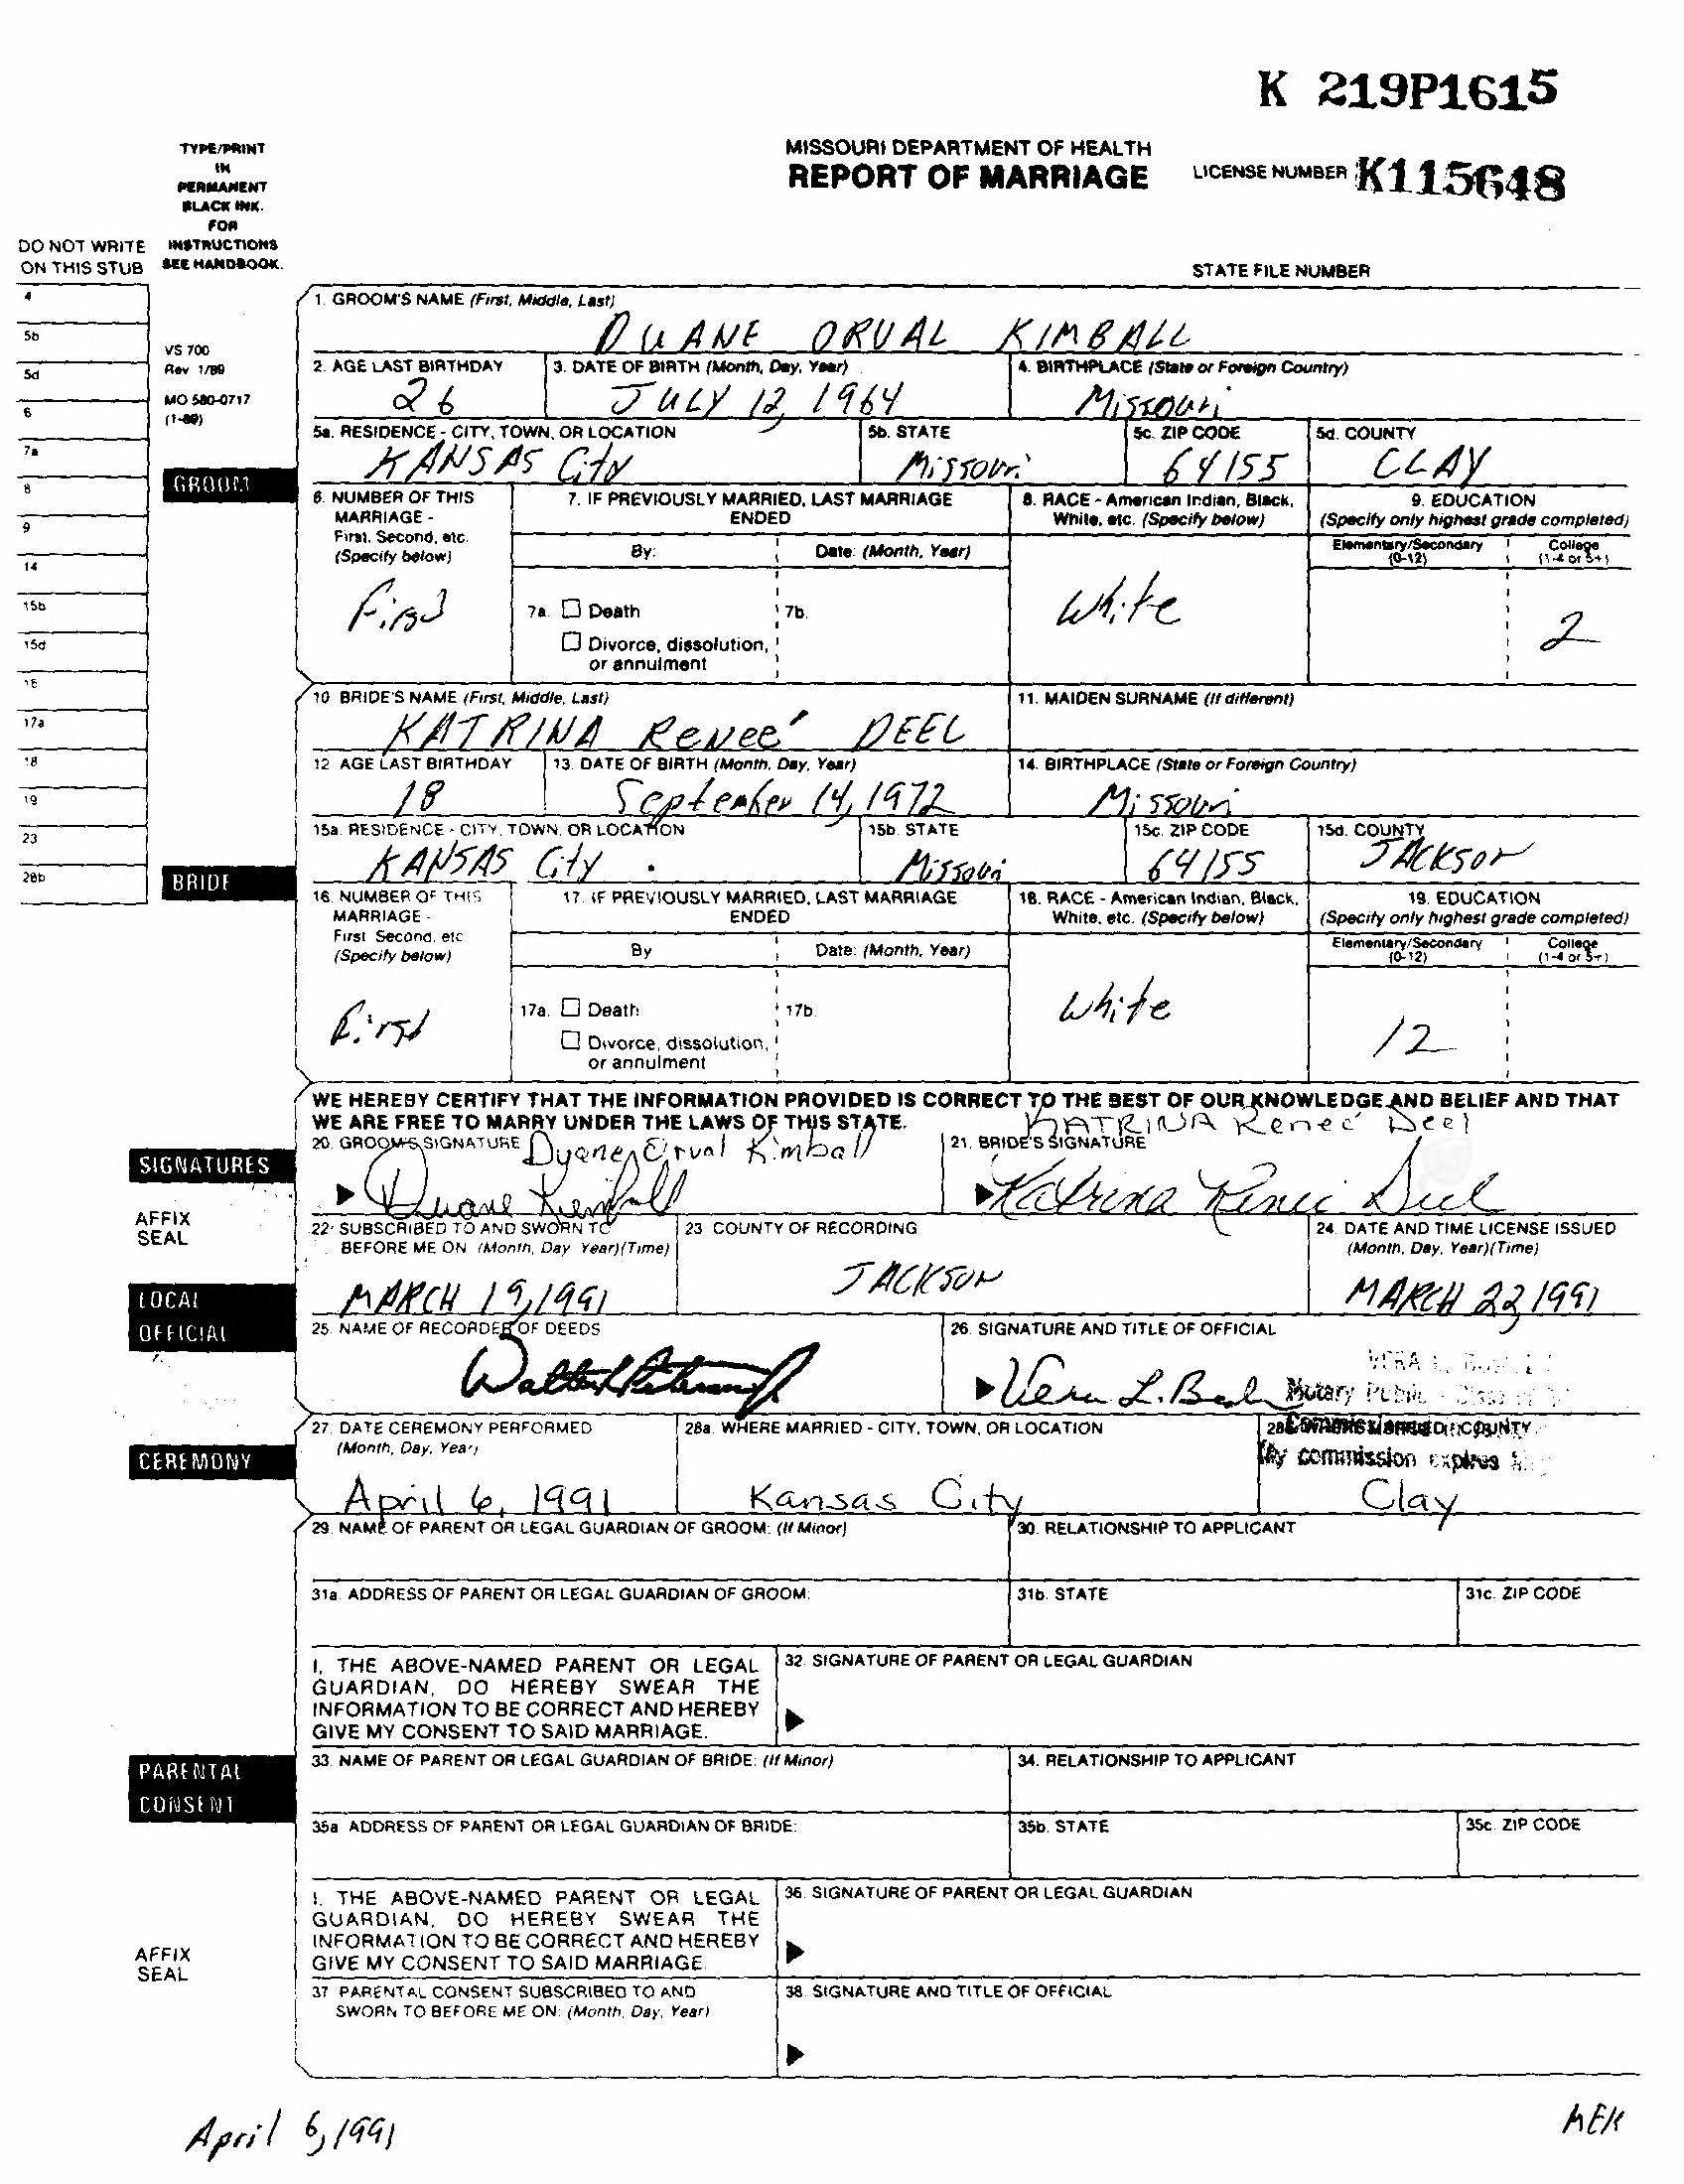 K 219P1615
TYPE/PRINT
IN
PERMANENT
BLACK INK.
FOR
INSTRUCTIONS
SEE HANDBOOK.
MISSOURI DEPARTMENT OF HEALTH
REPORT OF MARRIAGE
LICENSE NUMBER K115648
DO NOT WRITE
ON THIS STUB
STATE FILE NUMBER
4
5b
5d
6
7a
8
9
14
15b
15d
16
17a
18
19
23
28b
VS 700
Rev 1/89
MO 580-0717
(1-89)
GROOM
1. GROOM'S NAME (First, Middle, Last)
DUANE ORVAL KIMBALL
2. AGE LAST BIRTHDAY
26
3. DATE OF BIRTH (Month, Day, Year)
JULY 12, 1964
4. BIRTHPLACE (State or Foreign Country)
Missouri
5a. RESIDENCE - CITY, TOWN, OR LOCATION
KANSAS City
5b. STATE
Missouri
5c. ZIP CODE
64155
5d. COUNTY
CLAY
6. NUMBER OF THIS
MARRIAGE -
First, Second, etc.
(Specify below)
First
7. IF PREVIOUSLY MARRIED, LAST MARRIAGE
ENDED
By:
Date: (Month, Year)
7a. Death
Divorce, dissolution,
or annulment
7b.
8. RACE - American Indian, Black,
White, etc. (Specify below)
White
9. EDUCATION
(Specify only highest grade completed)
Elementary/Secondary
(0-12)
College
(1-4 or 5+)
2
BRIDE
10 BRIDE'S NAME (First, Middle, Last)
KATRINA Reneé DEEL
11. MAIDEN SURNAME (If different)
12 AGE LAST BIRTHDAY
18
13. DATE OF BIRTH (Month, Day, Year)
September 14, 1972
14. BIRTHPLACE (State or Foreign Country)
Missouri
15a. RESIDENCE - CITY, TOWN, OR LOCATION
KANSAS City
15b. STATE
Missouri
15c. ZIP CODE
64155
15d. COUNTY
JACKSON
16. NUMBER OF THIS
MARRIAGE -
First Second, etc
(Specify below)
first
17. IF PREVIOUSLY MARRIED, LAST MARRIAGE
ENDED
By
Date: (Month, Year)
17a. Death
Divorce, dissolution,
or annulment
17b.
18. RACE - American Indian, Black,
White, etc. (Specify below)
White
19. EDUCATION
(Specify only highest grade completed)
Elementary/Secondary
(0-12)
College
(1-4 or 5+)
12
WE HEREBY CERTIFY THAT THE INFORMATION PROVIDED IS CORRECT TO THE BEST OF OUR KNOWLEDGE AND BELIEF AND THAT
WE ARE FREE TO MARRY UNDER THE LAWS OF THIS STATE.
SIGNATURES
20. GROOM'S SIGNATURE
Duane Orval Kimball
Duane Kimball
21. BRIDE'S SIGNATURE
KATRINA Reneé Deel
Katrina Renee Deel
AFFIX
SEAL
22. SUBSCRIBED TO AND SWORN TO
BEFORE ME ON (Month, Day Year)(Time)
MARCH 19, 1991
23 COUNTY OF RECORDING
JACKSON
24. DATE AND TIME LICENSE ISSUED
(Month, Day, Year)(Time)
MARCH 22, 1991
LOCAL
OFFICIAL
25. NAME OF RECORDER OF DEEDS
26. SIGNATURE AND TITLE OF OFFICIAL
Vera L.
VERA L.
Notary Public
CEREMONY
27. DATE CEREMONY PERFORMED
(Month, Day, Year)
April 6, 1991
28a. WHERE MARRIED - CITY, TOWN, OR LOCATION
Kansas City
COUNTY
My commission expires
Clay
29. NAME OF PARENT OR LEGAL GUARDIAN OF GROOM: (If Minor)
30. RELATIONSHIP TO APPLICANT
31a. ADDRESS OF PARENT OR LEGAL GUARDIAN OF GROOM:
31b. STATE
31c. ZIP CODE
I, THE ABOVE-NAMED PARENT OR LEGAL
GUARDIAN, DO HEREBY SWEAR THE
INFORMATION TO BE CORRECT AND HEREBY
GIVE MY CONSENT TO SAID MARRIAGE.
32. SIGNATURE OF PARENT OR LEGAL GUARDIAN
PARENTAL
CONSENT
33. NAME OF PARENT OR LEGAL GUARDIAN OF BRIDE: (If Minor)
34. RELATIONSHIP TO APPLICANT
35a ADDRESS OF PARENT OR LEGAL GUARDIAN OF BRIDE:
35b. STATE
35c. ZIP CODE
I, THE ABOVE-NAMED PARENT OR LEGAL
GUARDIAN, DO HEREBY SWEAR THE
INFORMATION TO BE CORRECT AND HEREBY
GIVE MY CONSENT TO SAID MARRIAGE.
36. SIGNATURE OF PARENT OR LEGAL GUARDIAN
AFFIX
SEAL
37 PARENTAL CONSENT SUBSCRIBED TO AND
SWORN TO BEFORE ME ON: (Month, Day, Year)
38. SIGNATURE AND TITLE OF OFFICIAL
April 6, 1991
MEK